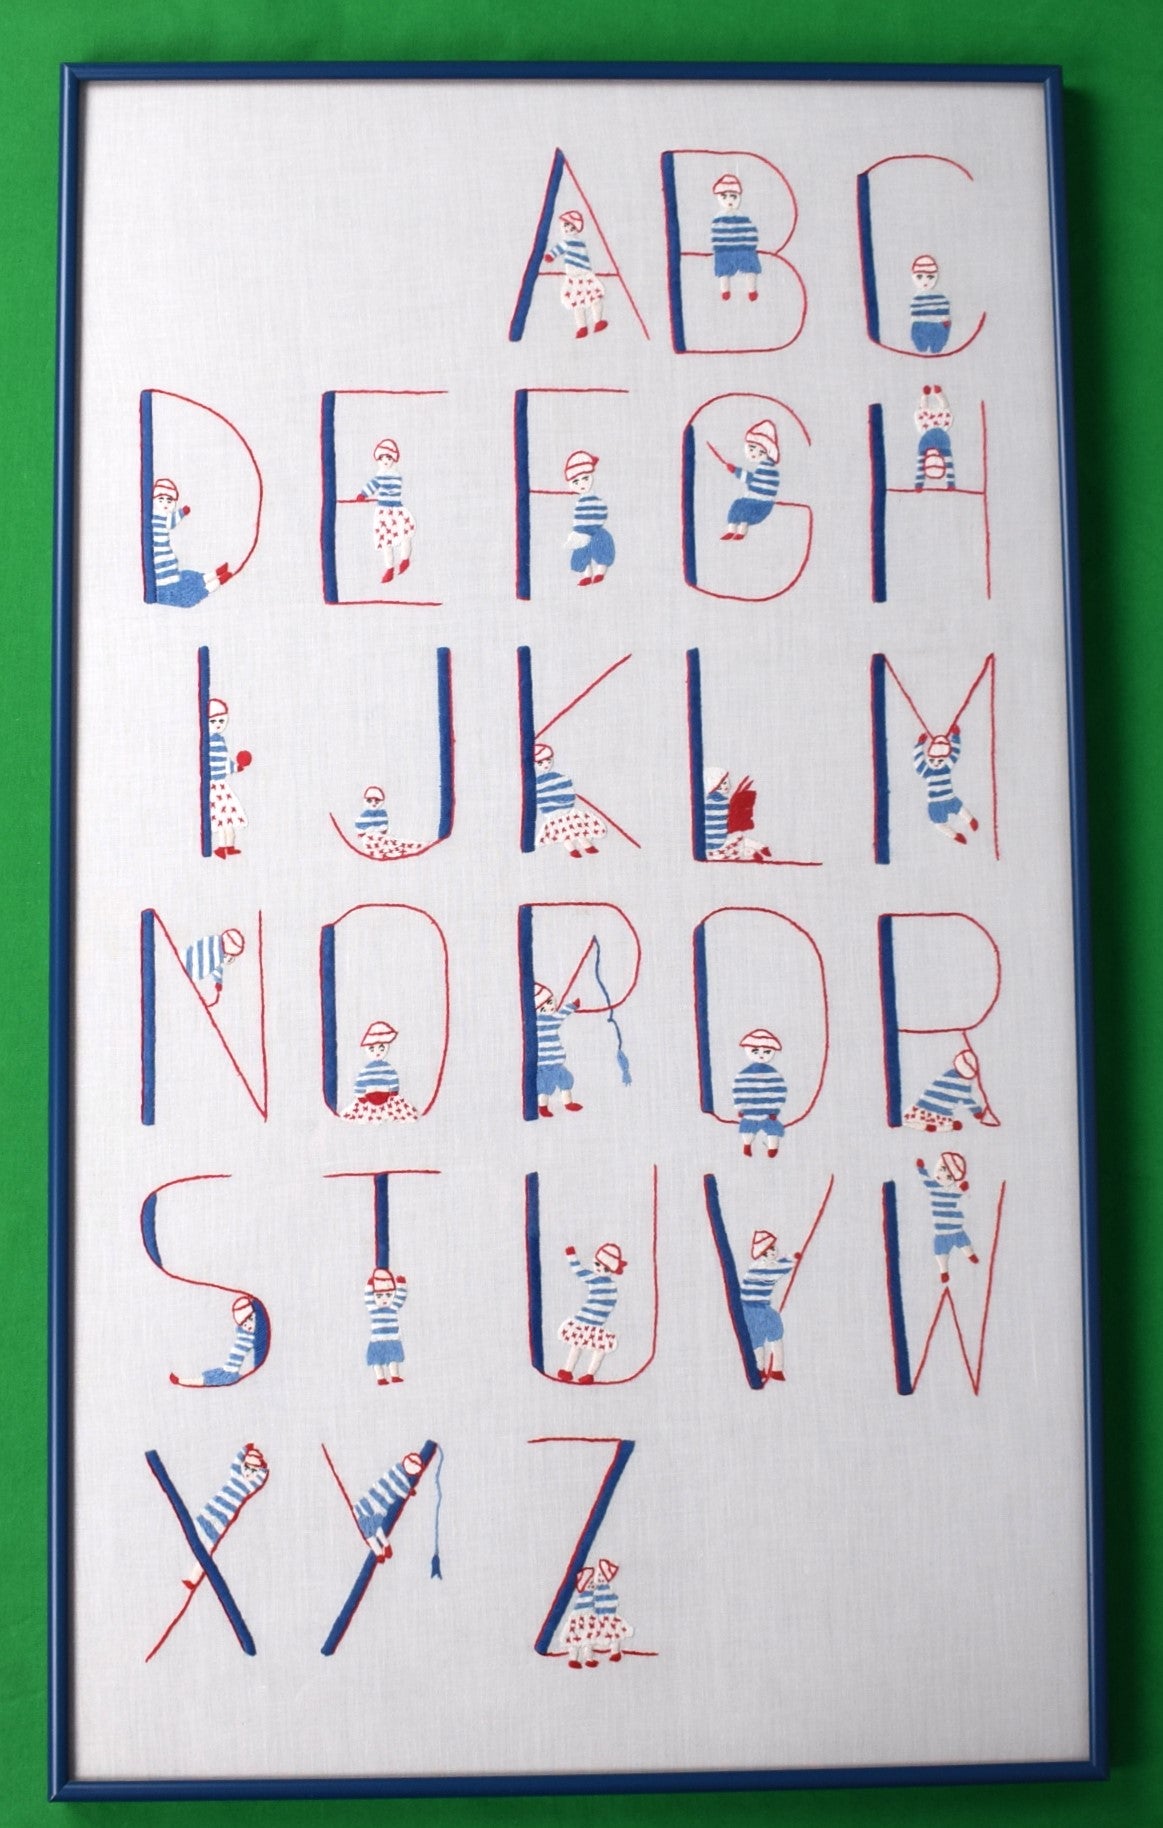 A B C
D E F G H
I J K L M
N O P Q R
S T U V W
X Y Z